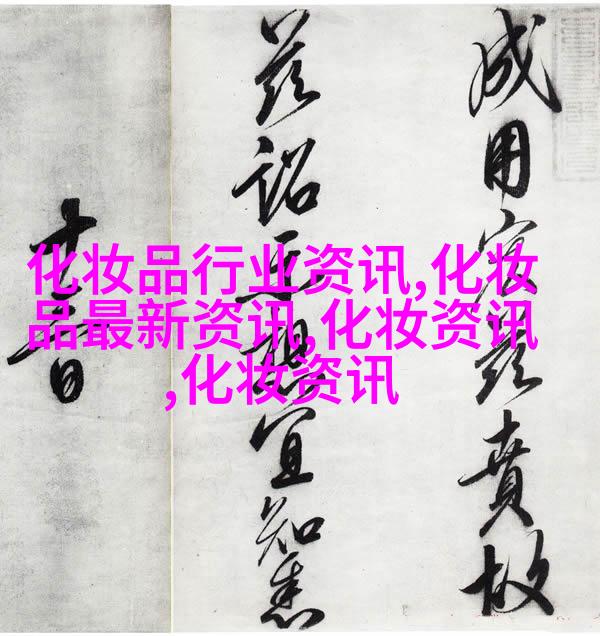 化妆品行业资讯,化妆
品最新资讯,化妆资讯
,化妆资讯
成用賁故
兹詔示想宜知悉
十日